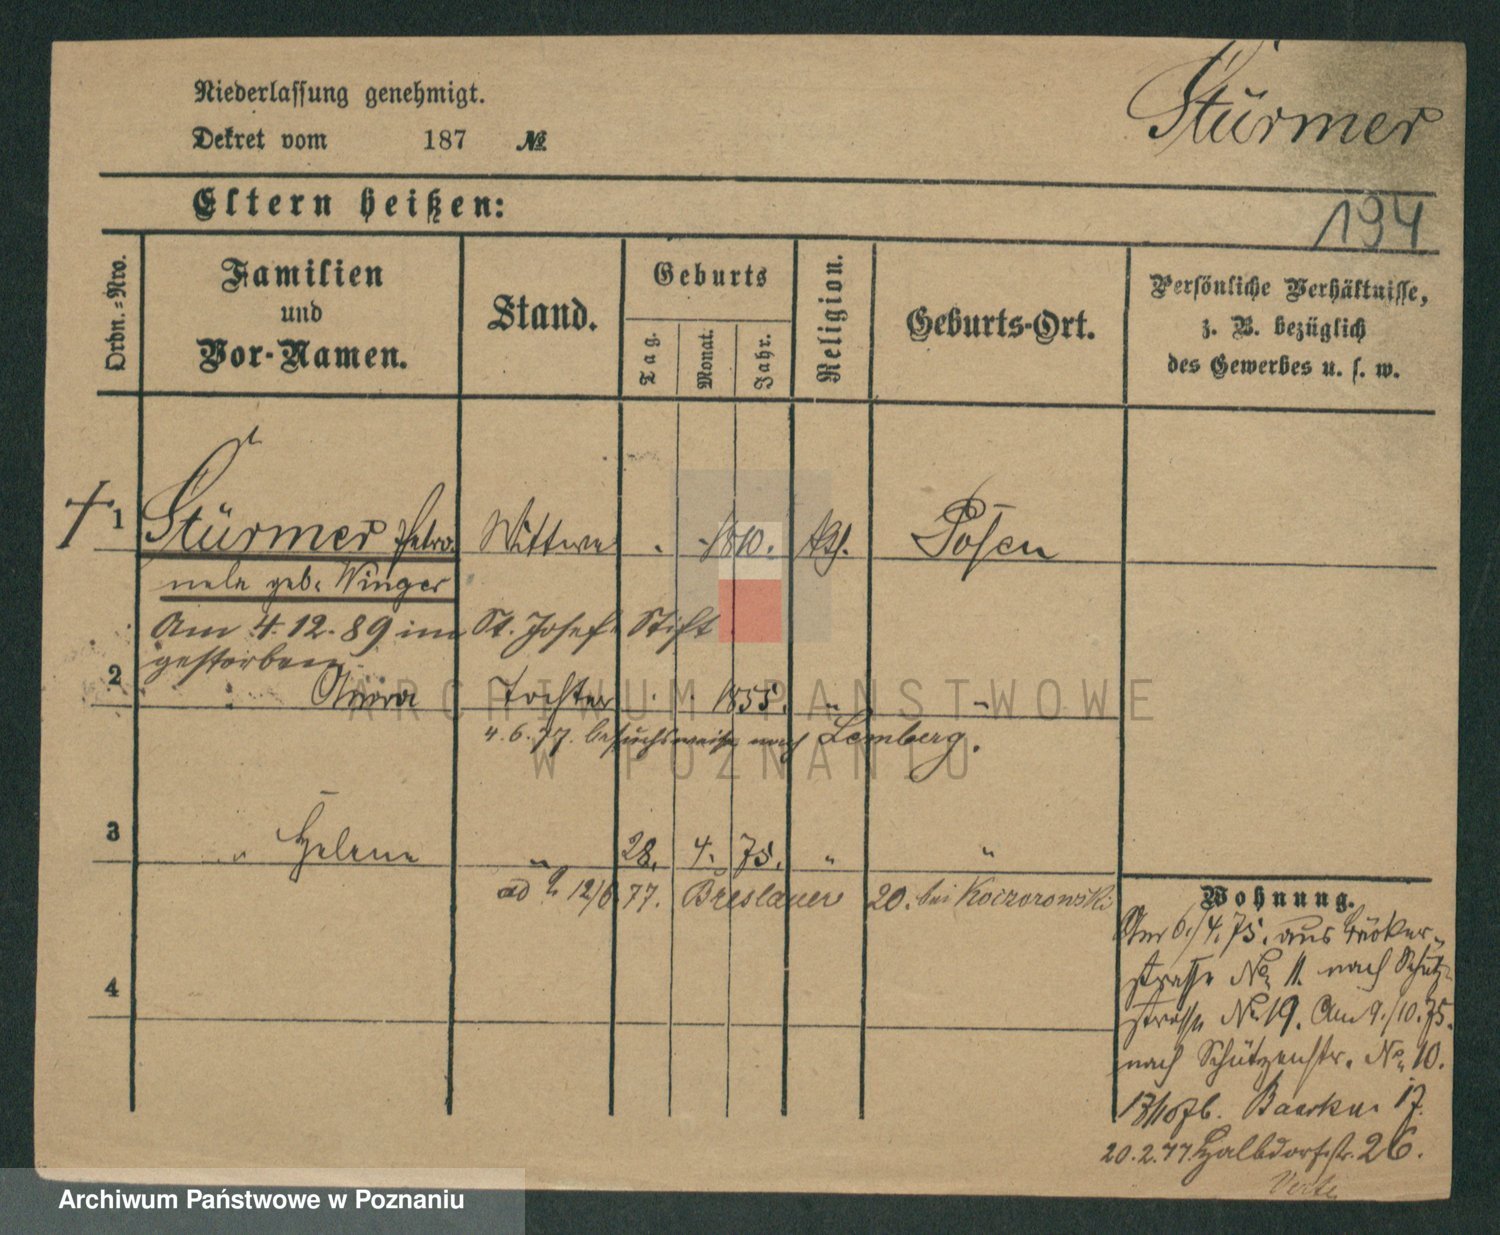 Niederlassung genehmigt.
Dekret vom 187 №
Stürmer
Eltern heißen:
194
Ordn.-Nro.
Familien
und
Vor-Namen.
Stand.
Geburts
Tag.
Monat.
Jahr.
Religion.
Geburts-Ort.
Persönliche Verhältnisse,
z. B. bezüglich
des Gewerbes u. s. w.
1 Stürmer Petro- Wittwe 1810. kth. Posen
nela geb. Winger
Am 4.12.89 im St. Josef Stift
gestorben
2 " Anna Tochter 1855. " "
4.6.77. besuchsweise nach Lemberg.
3 " Helene " 28. 4. 75. " "
12/6 77. Breslauer 20. bei Koczorowski
4
Wohnung.
Am 6./4.75. aus
strasse No 11. nach Schütz-
strasse No 19. Am 9./10.75.
nach Schützenstr. No 10.
17.
20.2.77. Halbdorfstr. 26.
Verte
ARCHIWUM PAŃSTWOWE
W POZNANIU
Archiwum Państwowe w Poznaniu